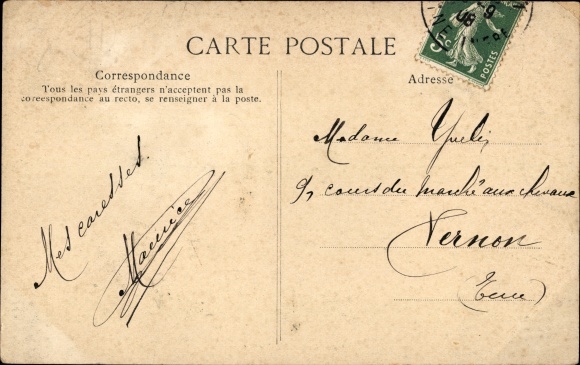 CARTE POSTALE
Correspondance
Tous les pays étrangers n'acceptent pas la
correspondance au recto, se renseigner à la poste.
Mes caresses.
Maurice
Adresse
POSTES
08
Madame
9, cours du marché aux chevaux
Vernon
(Eure)